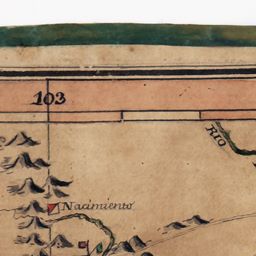 103
RIO
Nacimiento